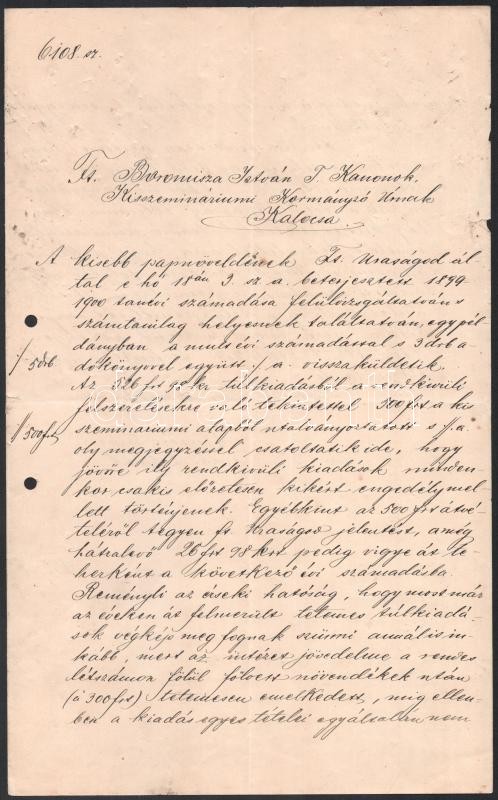 6108. sz.
Fs. Boromisza István T. Kanonok,
Kisszemináriumi Kormányzó Úrnak
Kalocsa
A kisebb papnöveldének Fs. Uraságod ál-
tal e hó 18 án 3. sz. a. beterjesztett 1899-
1900 tanévi számadása felülvizsgáltatván s
számtanilag helyesnek találtatván, egy pél-
dányban a mult évi számadással s 3 drb a-
dókönyvel együtt ·/. a. visszaküldetik.
·/· 5 drb.
Az 526 frt 98 kr túlkiadásból a rendkivüli
felszerelésekre való tekintettel 500 frt a kis
szemináriumi alapból utalványoztatott s ·/. a.
// 500 frt
oly megjegyzéssel csatoltatik ide, hogy
jövőre ily rendkivüli kiadások minden-
kor csakis előzetesen kikért engedély mel-
lett történjenek. Egyébként az 500 frt átvé-
teléről tegyen fs. Uraságod jelentést, a még
hátralevő 26 frt 98 krt pedig vigye át te-
herként a következő évi számadásba.
Reményli az érseki hatóság, hogy most már
az éveken át felmerült tetemes túlkiadá-
sok végkép meg fognak szünni annál is in-
kább, mert az intézet jövedelme a rendes
létszámon fölül fölvett növendékek után
(à 300 frt) tetemesen emelkedett, míg ellen-
ben a kiadás egyes tételei egyáltalán nem